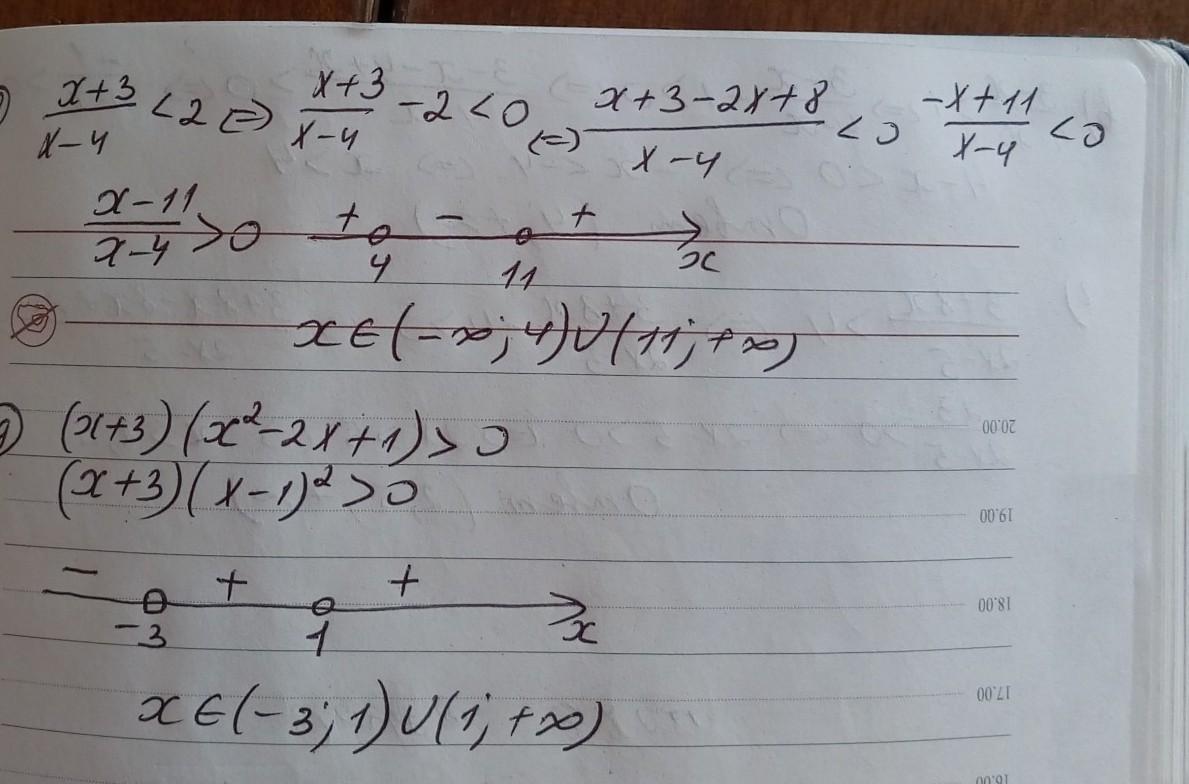 ) (x+3)/(x-4) < 2 ⇔ (x+3)/(x-4) - 2 < 0 ⇔ (x+3-2x+8)/(x-4) < 0 (-x+11)/(x-4) < 0
(x-11)/(x-4) > 0 + - +
4 11 x
x ∈ (-∞; 4) ∪ (11; +∞)
) (x+3)(x²-2x+1) > 0
20.00
(x+3)(x-1)² > 0
19.00
- + +
18.00
-3 1 x
17.00
x ∈ (-3; 1) ∪ (1; +∞)
16.00